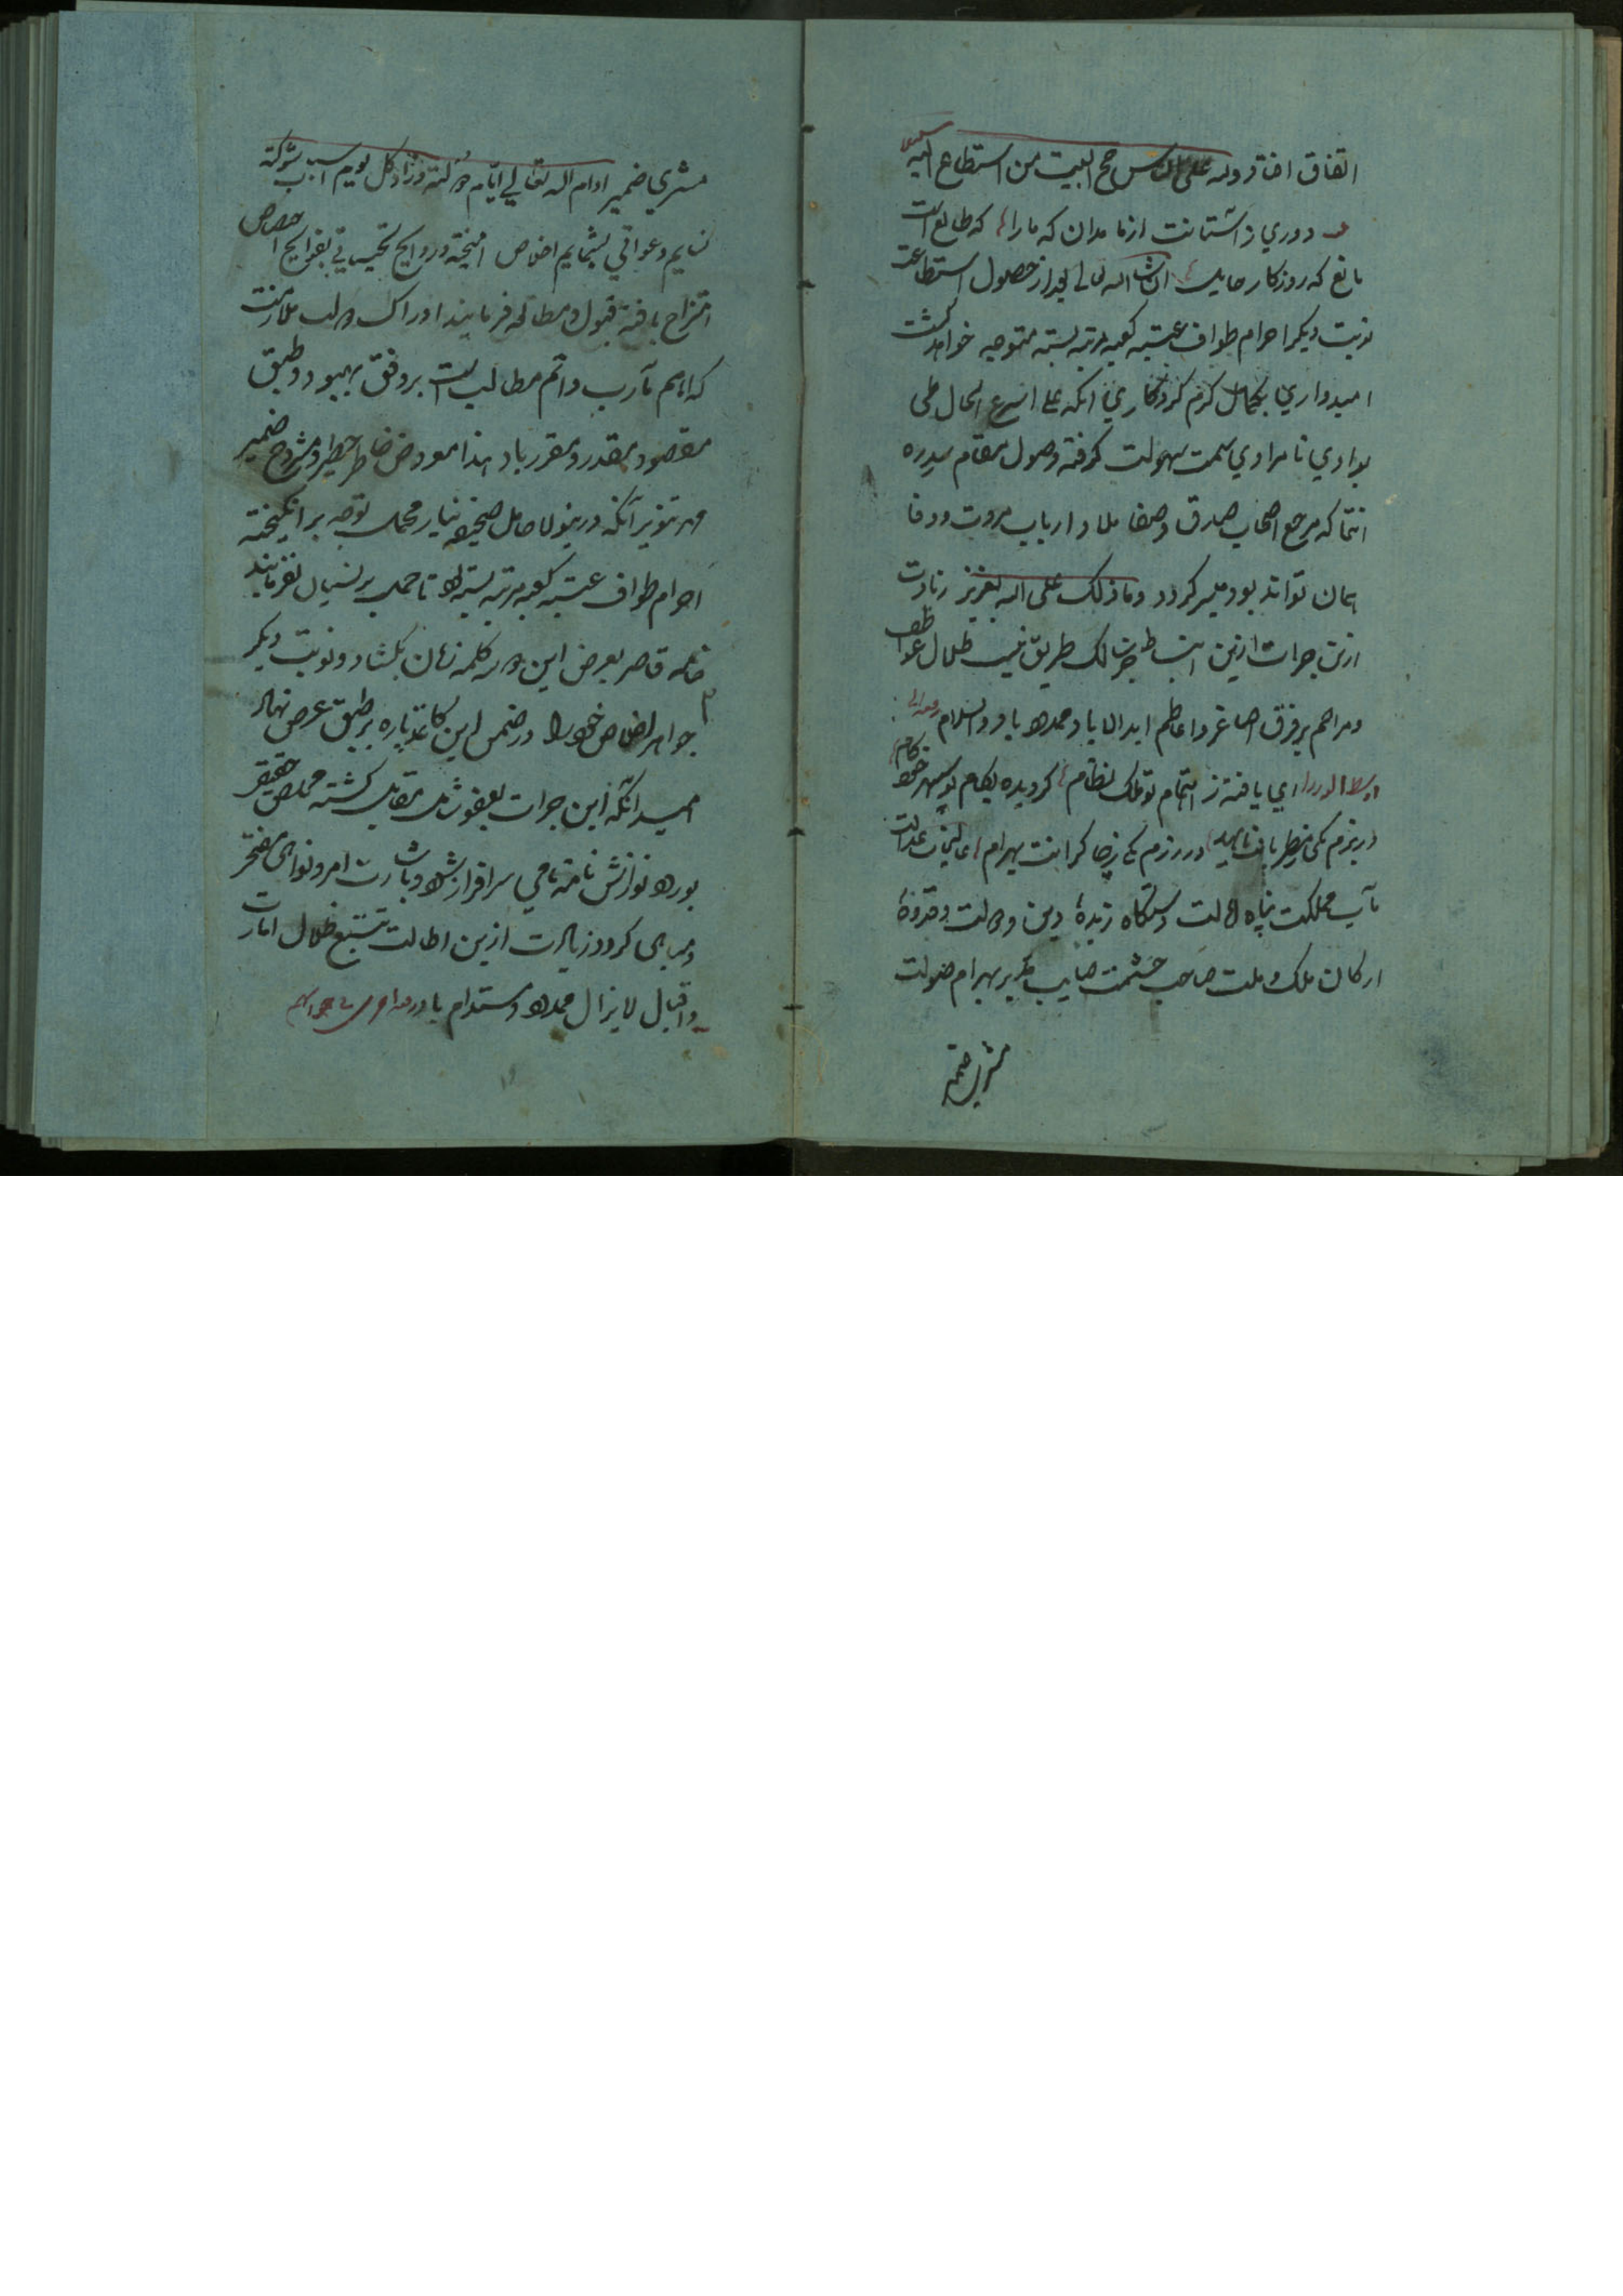 اتفاق افتاد ولله علی الناس حج البیت من استطاع الیه
دوري ز آستانت ازما مدان که ما را که طالع است
مانع که روزکار حایل ان شا الله تعالی بعد از حصول استطاعت
نوبت دیکر احرام طواف عتبه کعبه مرتبه بسته متوجه خواهد کشت
امیدواري بکمال کرم کردکاري آنکه علی اسرع الحال طی
بوادي نامرادي سمت سهولت کرفته وصول بمقام سدره
انتما که مرجع اصحاب صدق وصفا و ارباب مروت و وفا
همان تواند بود میسر کردد وما ذلک علی الله بعزیز زیادت
ازین جرات ازین انبساط طریق نیست ظلال عواطف
ومراحم برفرق اصاغر و اعاظم ابد الاباد ممدود باد والسلام
اي یافته ز اهتمام تو ملک نظام کردیده بکام تو سپهر خودکام
در بزم یکی مطربهات ناهید در رزم یکی ز چاکرانت بهرام عدالت
مآب مملکت پناه ایالت دستکاه زبدهٔ دین و دولت وقدوهٔ
ارکان ملک و ملت صاحب حشمت صایب تدبیر بهرام صولت
مشتري ضمیر
مشتري ضمیر ادام الله تعالي ایام دولته وزاد کل یوم اسباب شوکته
نسایم دعواتي بشمایم اخلاص آمیخته و روایح تحیاتي بفوایح اختصاص
امتزاج یافته قبول ومطالعه فرمایند ادراک دولت ملازمت
که اهم مآرب و اتم مطالب است بر وفق بهبود و طبق
مقصود مقدر و مقرر باد هذا معروض خاطر خطیر و مشروح ضمیر
مهر تنویر آنکه درینولا حامل صحیفه نیاز محمل توجه برانکیخته
احرام طواف عتبه کعبه مرتبه بسته بود تا حمل بر نسیان نفرمایند
خامه قاصر بعرض این دو سه کلمه زبان بکشاد و نوبت دیکر
جواهر اخلاص خود را در ضمن این کاغذ پاره بر طبق عرض نهاد
امید آنکه این جرات بعفو شامل مقابل کشته مخلص حقیر
بورود نوازش نامه نامي سرافراز شود و بشارت امر و نواهی مفتخر
و مباهی کردد زیادت ازین اطالت ننمود ظلال امارت
و اقبال لایزال ممدود و مستدام باد